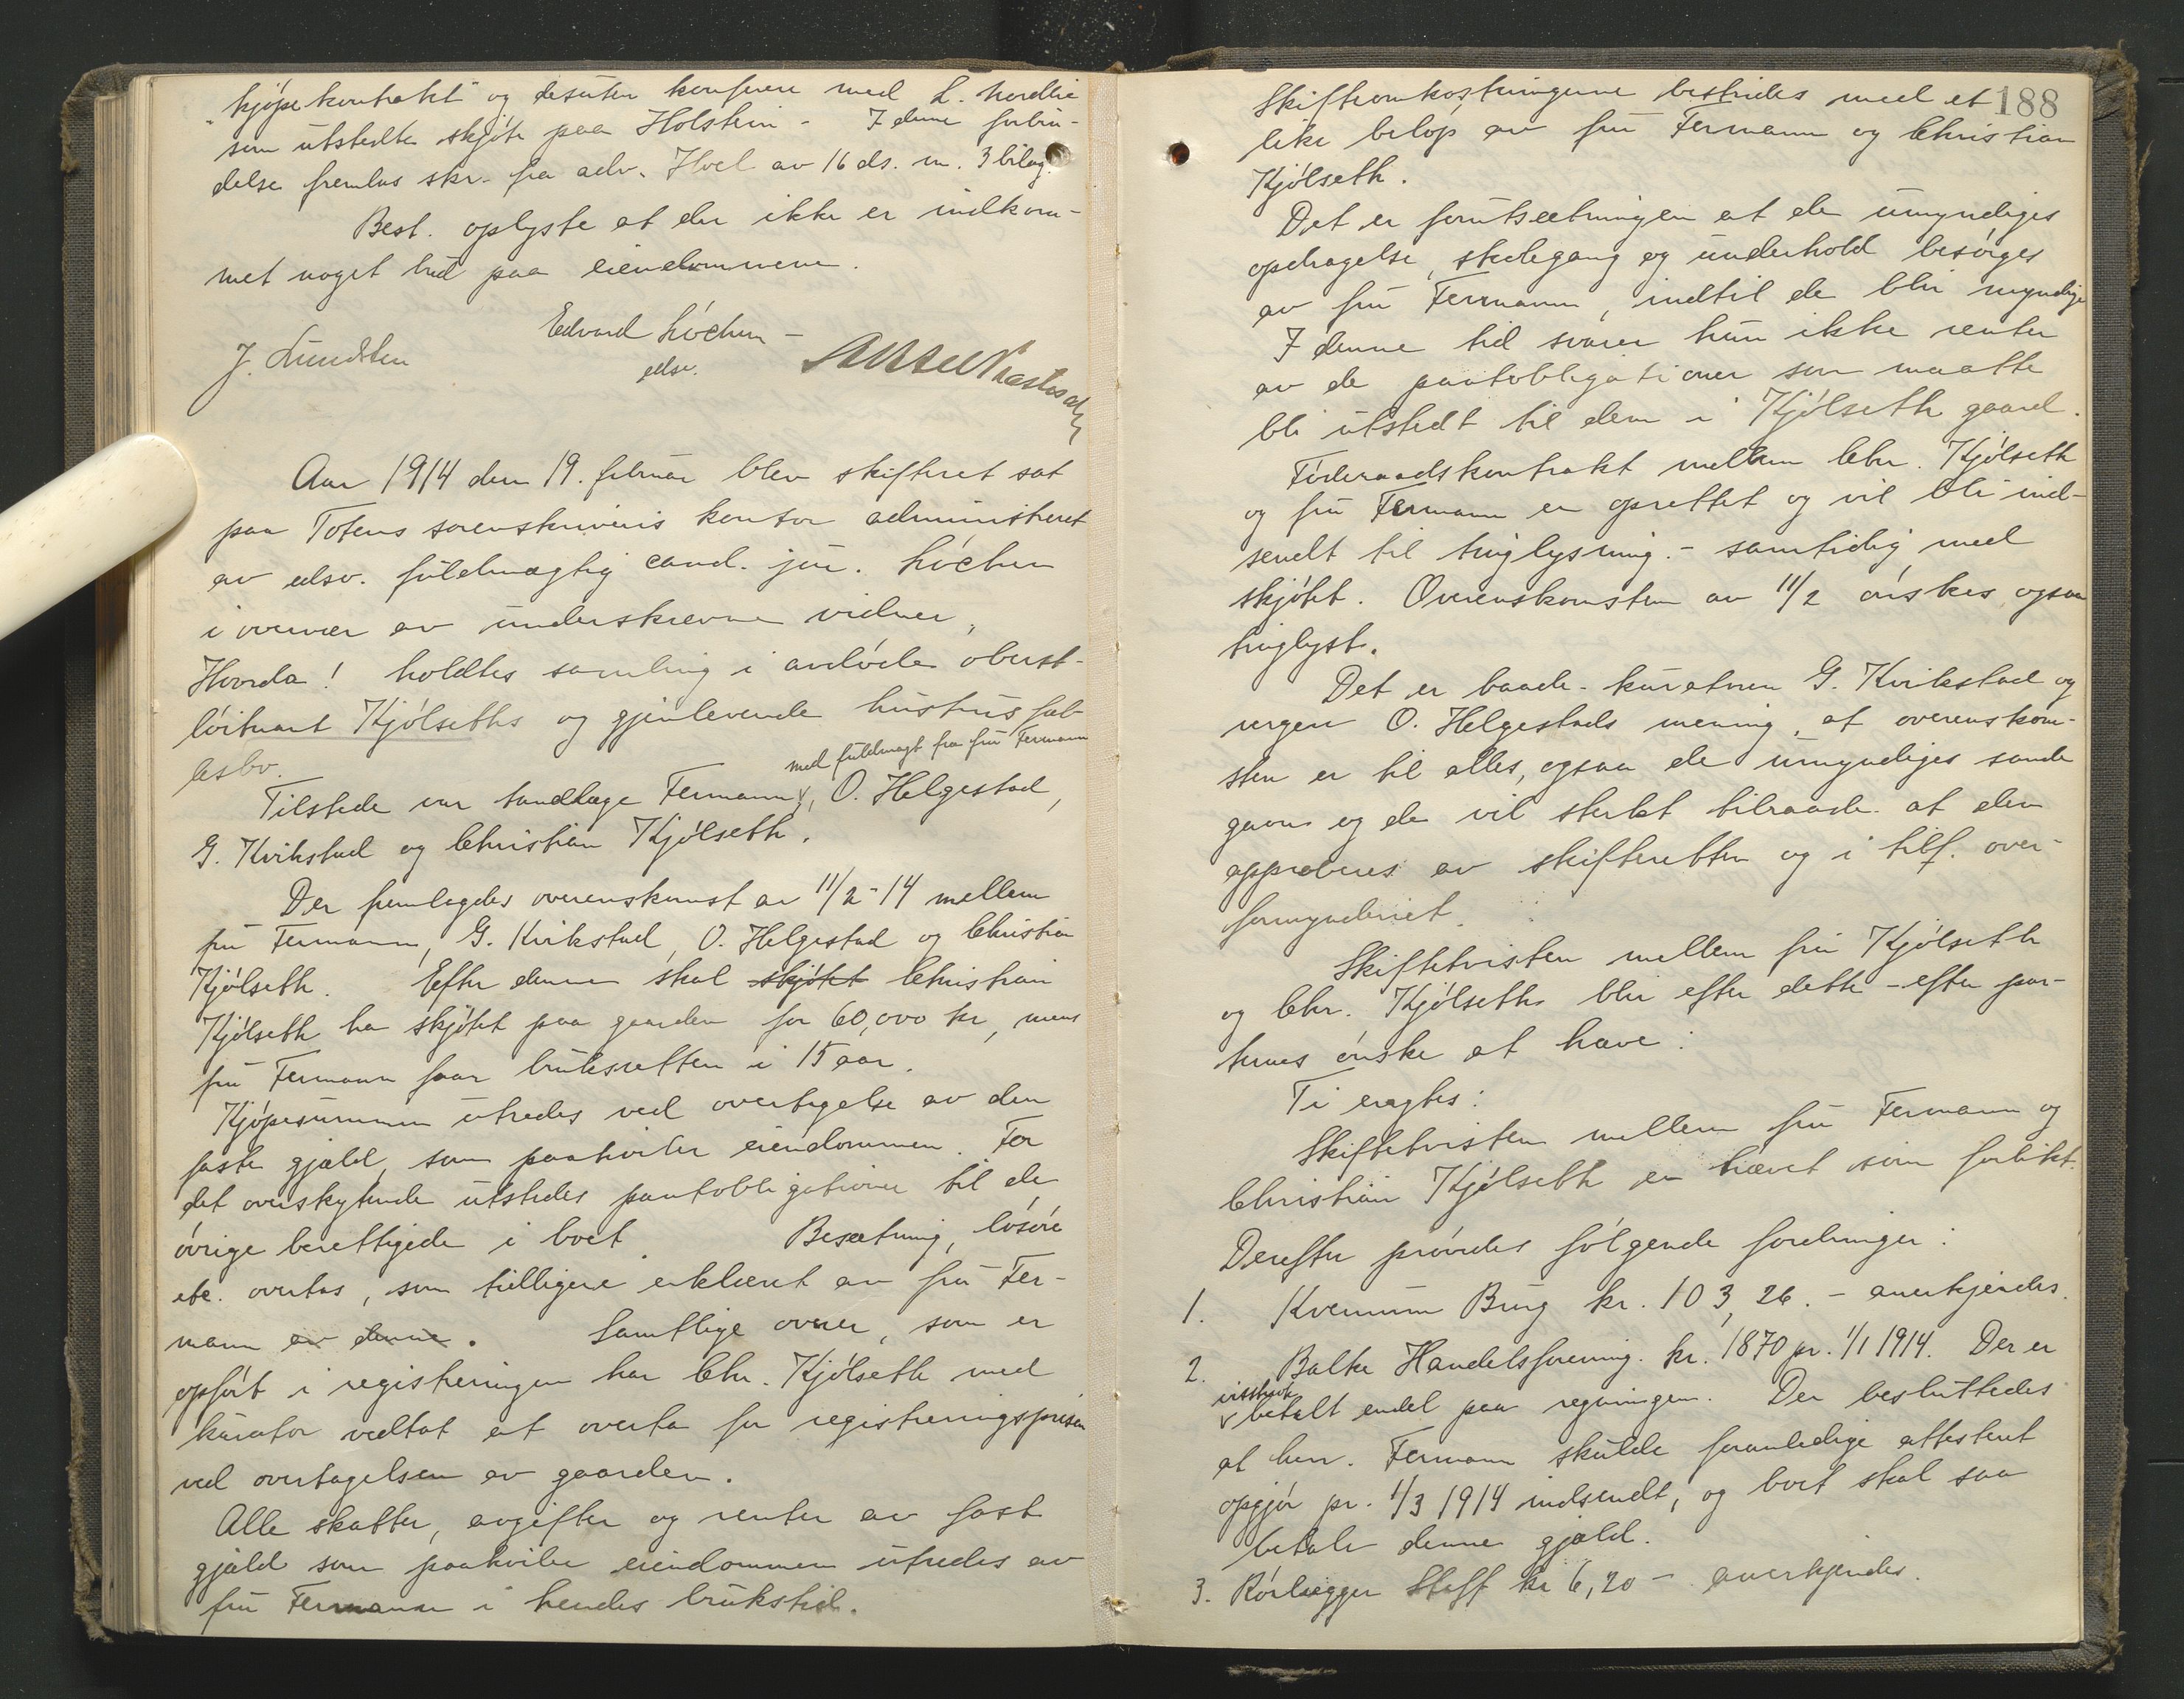 "kjøpekontrakt" og desuten konferere med L. Nordlie
som utstedte skjøte paa Holstein - I denne forbin-
delse fremlas skr. fra adv. Hoel av 16 ds. m. 3 bilag.
Best. oplyste at der ikke er indkom-
met noget bud paa eiendommene.
Edvard Løchen -
J. Lundsten edsv.
Aar 1914 den 19. februar blev skifteret sat
paa Totens sorenskriveris kontor administreret
av edsv. fuldmægtig cand. jur. Løchen
i overvær av underskrevne vidner,
Hvorda! holdtes samling i avdøde oberst-
løitnant Kjølseths og gjenlevende hustrus fæl-
lesbo.
med fuldmagt fra fru Fermann
Tilstede var tandlæge Fermann, O. Helgestad,
G. Kvikstad og Christian Kjølseth.
Der fremlagdes overenskomst av 11/2-14 mellem
fru Fermann, G. Kvikstad, O. Helgestad og Christian
Kjølseth. Efter denne skal skjøtet Christian
Kjølseth ha skjøtet paa gaarden for 60,000 kr, mens
fru Fermann faar bruksretten i 15 aar.
Kjøpesummen utredes ved overtagelse av den
faste gjæld, som paahviler eiendommen. For
det overskytende utstedes pantobligationer til de
øvrige berettigede i boet. Besætning, løsøre
etc. overtas, som tidligere erklæret av fru Fer-
mann av denne. Samtlige ovner, som er
opført i registreringen har Chr. Kjølseth med
kurator vedtat at overta for registreringsprisen
ved overtagelsen av gaarden.
Alle skatter, avgifter og renter av fast
gjæld som paahviler eiendommen utredes av
fru Fermann i hendes brukstid.
188
Skifteomkostningerne bestrides med et
like beløp av fru Fermann og Christian
Kjølseth.
Det er forutsætningen at de umyndiges
opdragelse, skolegang og underhold besørges
av fru Fermann, indtil de blir myndige
I denne tid svarer hun ikke renter
av de pantobligationer som maatte
bli utstedt til dem i Kjølseth gaard.
Føderaadskontrakt mellem Chr. Kjølseth
og fru Fermann er oprettet og vil bli ind-
sendt til tinglysning - samtidig med
skjøtet. Overenskomsten av 11/2 ønskes ogsaa
tinglyst.
Det er baade kuratoren G. Kvikstad og
vergen O. Helgestads mening, at overenskom-
sten er til alles, ogsaa de umyndiges sande
gavn og de vil sterkt tilraade at den
approberes av skifteretten og i tilf. over-
formynderiet.
Skiftetvisten mellem fru Kjølseth
og Chr. Kjølseth blir efter dette - efter par-
ternes ønske at hæve:
Ti eragtes:
Skiftetvisten mellem fru Fermann og
Christian Kjølseth er hævet som forlikt.
Derefter prøvedes følgende fordringer:
1. Kvernum Brug kr. 103,26. - anerkjendes.
2. Balke Handelsforening. kr. 1870 pr. 1/1 1914. Der er
visstnok
betalt endel paa regningen. Der besluttedes
at herr. Fermann skulde foranledige attestert
opgjør pr. 1/3 1914 indsendt, og boet skal saa
betale denne gjæld.
3. Rørlægger Staff kr 6,20 - anerkjendes.